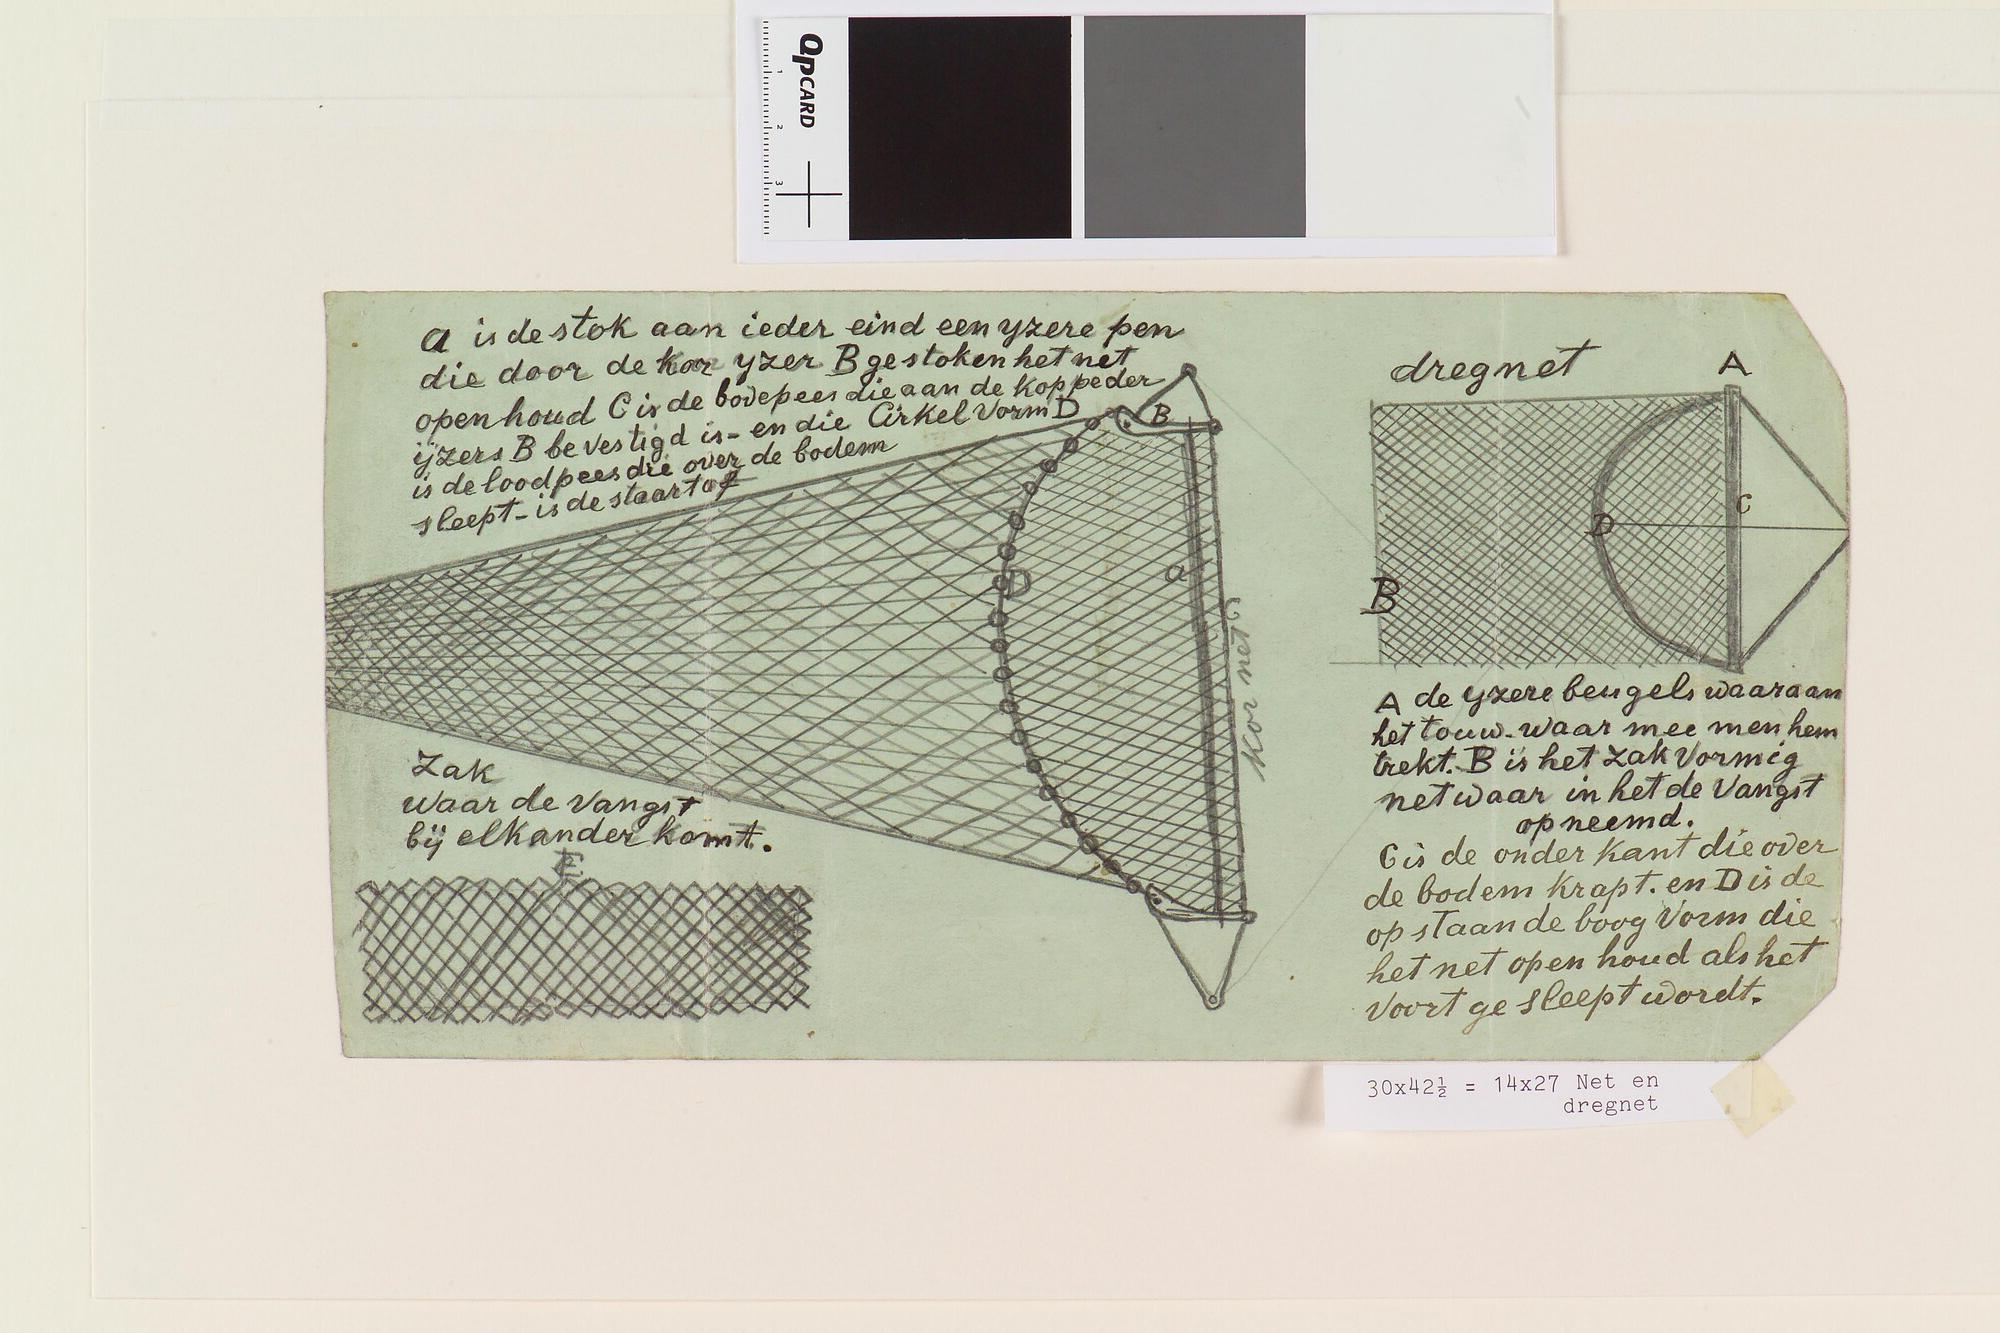 QPCARD
1
2
3
a is de stok aan ieder eind een yzere pen
die door de kor yzer B gestoken het net
open houd C is de bovepees die aan de koppe der
ijzers B bevestigd is - en die Cirkel Vorm D
is de loodpees die over de bodem
sleept - is de staart of
B
D
a
Zak
waar de vangst
bij elkander komt.
E
dregnet
A
C
D
B
A de yzere beugels waaraan
het touw. waar mee men hem
trekt. B is het zak Vormig
net waar in het de Vangst
op neemd.
C is de onder kant die over
de bodem krapt. en D is de
op staande boog Vorm die
het net open houd als het
Voort ge sleept wordt.
30x42½ = 14x27 Net en
dregnet